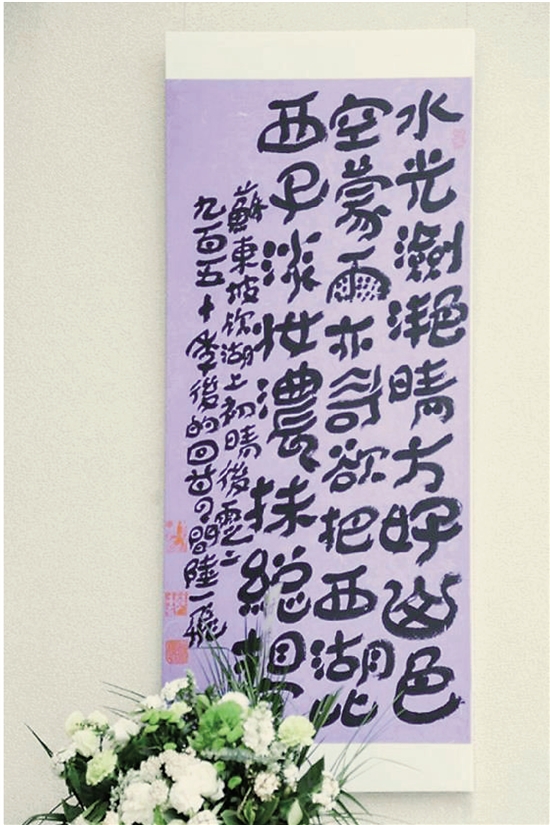 水光瀲滟晴方好山色
空蒙雨亦奇欲把西湖比
西子淡妆濃抹總相
蘇東坡飲湖上初晴後雨之二
九百五十秊後的陸一飛